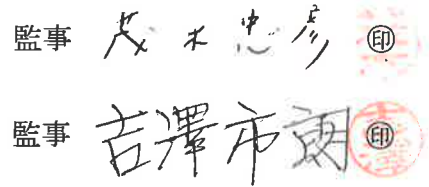 監事 茂木忠彦 ㊞
監事 吉澤市朗 ㊞